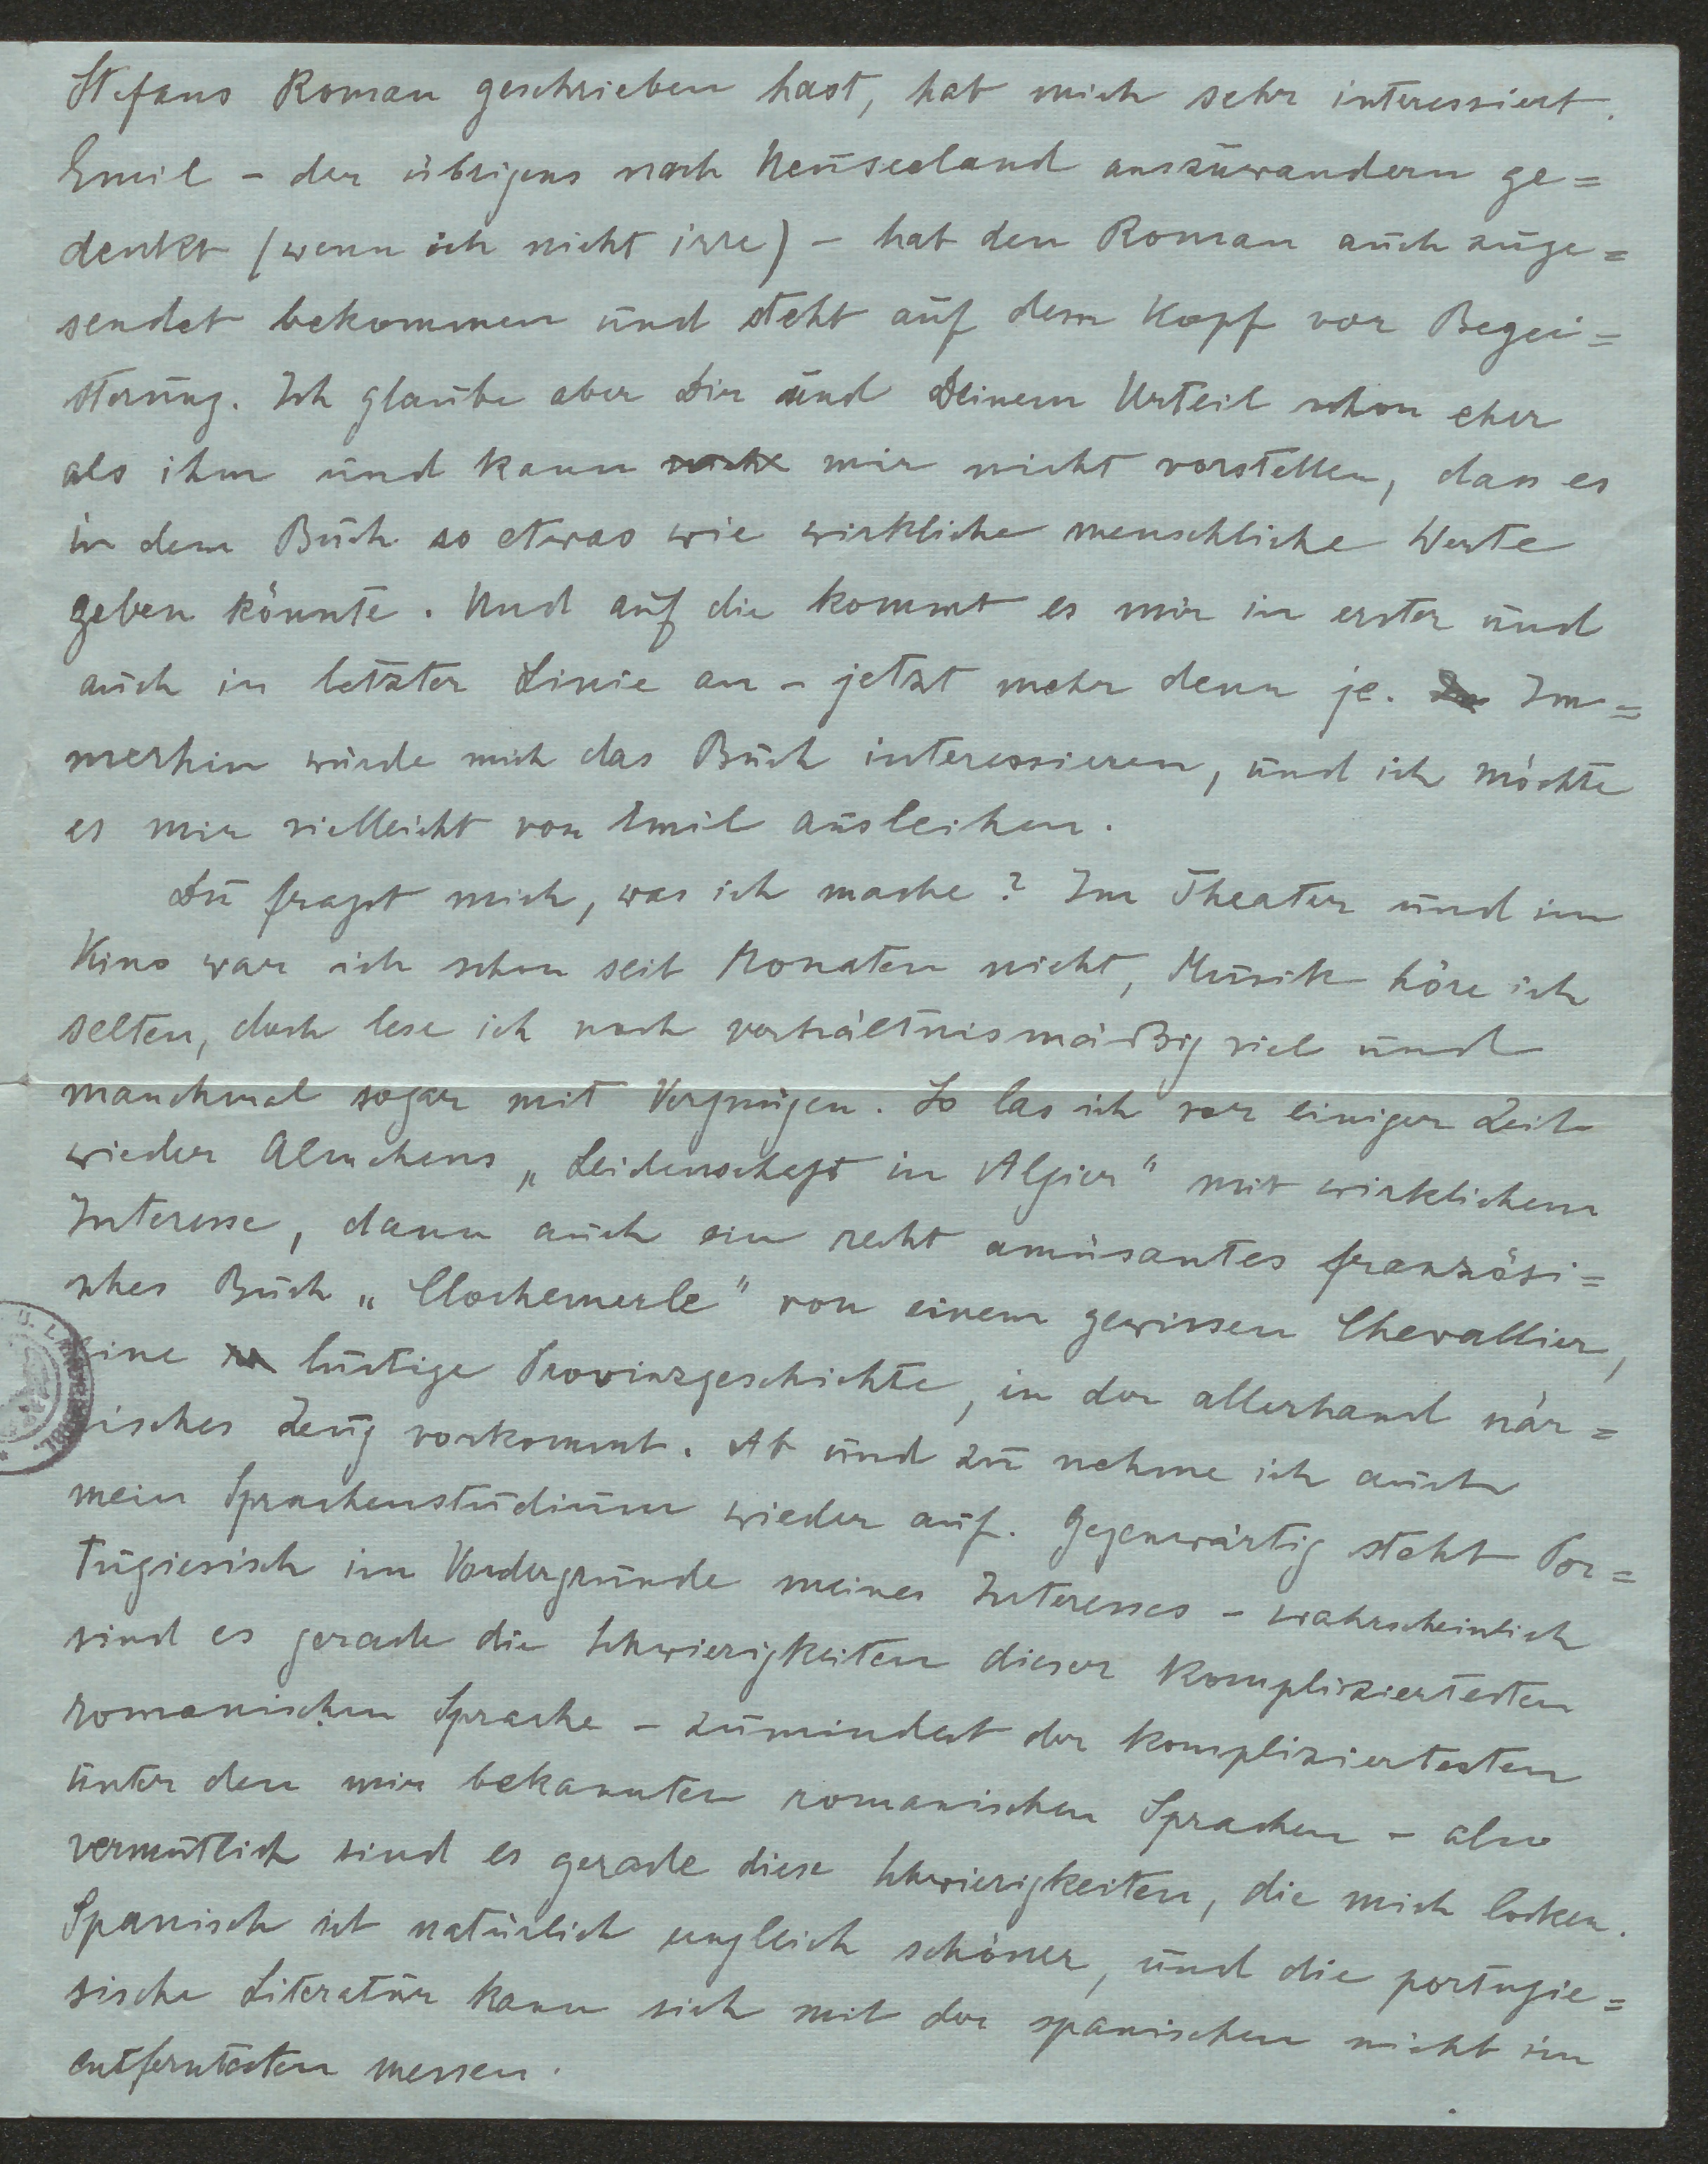 Stefans Roman geschrieben hast, hat mich sehr interessiert.
Emil – der übrigens nach Neuseeland auszuwandern ge=
denkt (wenn ich nicht irre) – hat den Roman auch zuge=
sendet bekommen und steht auf dem Kopf vor Begei=
sterung. Ich glaube aber Dir und Deinem Urteil schon eher
als ihm und kann mir nicht vorstellen, dass es
in dem Buch so etwas wie wirkliche menschliche Werte
geben könnte. Und auf die kommt es mir in erster und
auch in letzter Linie an – jetzt mehr denn je. Im=
merhin würde mich das Buch interessieren, und ich möchte
es mir vielleicht von Emil ausleihen.
Du fragst mich, was ich mache? Im Theater und im
Kino war ich schon seit Monaten nicht, Musik höre ich
selten, doch lese ich noch verhältnismäßig viel und
manchmal sogar mit Vergnügen. So las ich vor einiger Zeit
wieder „Leidenschaft in Algier" mit wirklichem
Interesse, dann auch ein recht amüsantes französi=
sches Buch „Clochemerle" von einem gewissen Chevallier,
eine lustige Provinzgeschichte, in der allerhand när=
risches Zeug vorkommt. Ab und zu nehme ich auch
mein Sprachenstudium wieder auf. Gegenwärtig steht Por=
tugiesisch im Vordergrunde meines Interesses – wahrscheinlich
sind es gerade die Schwierigkeiten dieser kompliziertesten
romanischen Sprache – zumindest der kompliziertesten
unter den mir bekannten romanischen Sprachen – also
vermutlich sind es gerade diese Schwierigkeiten, die mich locken.
Spanisch ist natürlich ungleich schöner, und die portugie=
sische Literatur kann sich mit der spanischen nicht im
entferntesten messen.